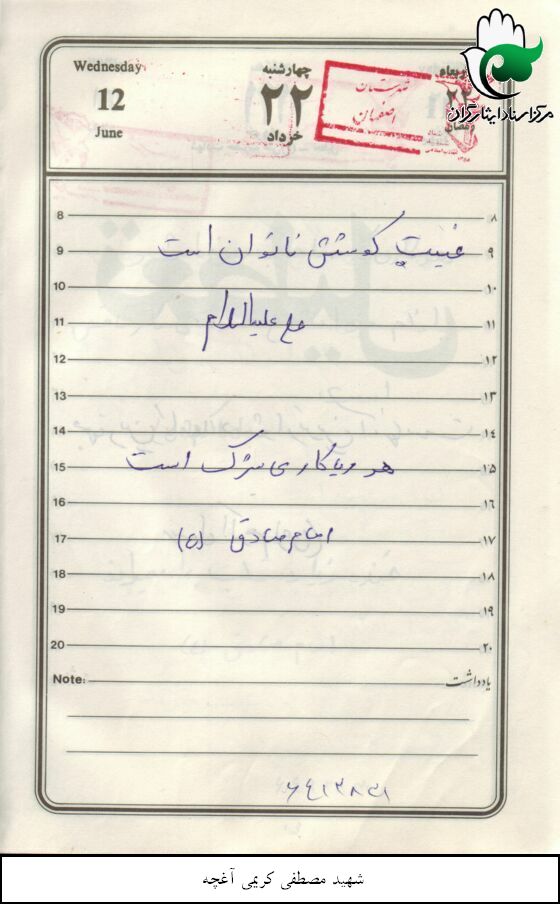 Wednesday
12
June
چهارشنبه
۲۲
خرداد
۲۲
رمضان
شهرستان
اصفهان
مرکز اسناد ایثارگران
8 ۸
9 غیبت کوشش ناتوان است ۹
10 ۱۰
11 علی علیه السلام ۱۱
12 ۱۲
13 ۱۳
14 ۱۴
15 هر ریاکاری شرک است ۱۵
16 ۱۶
17 امام صادق (ع) ۱۷
18 ۱۸
19 ۱۹
20 ۲۰
Note: یادداشت
شهید مصطفی کریمی آغچه